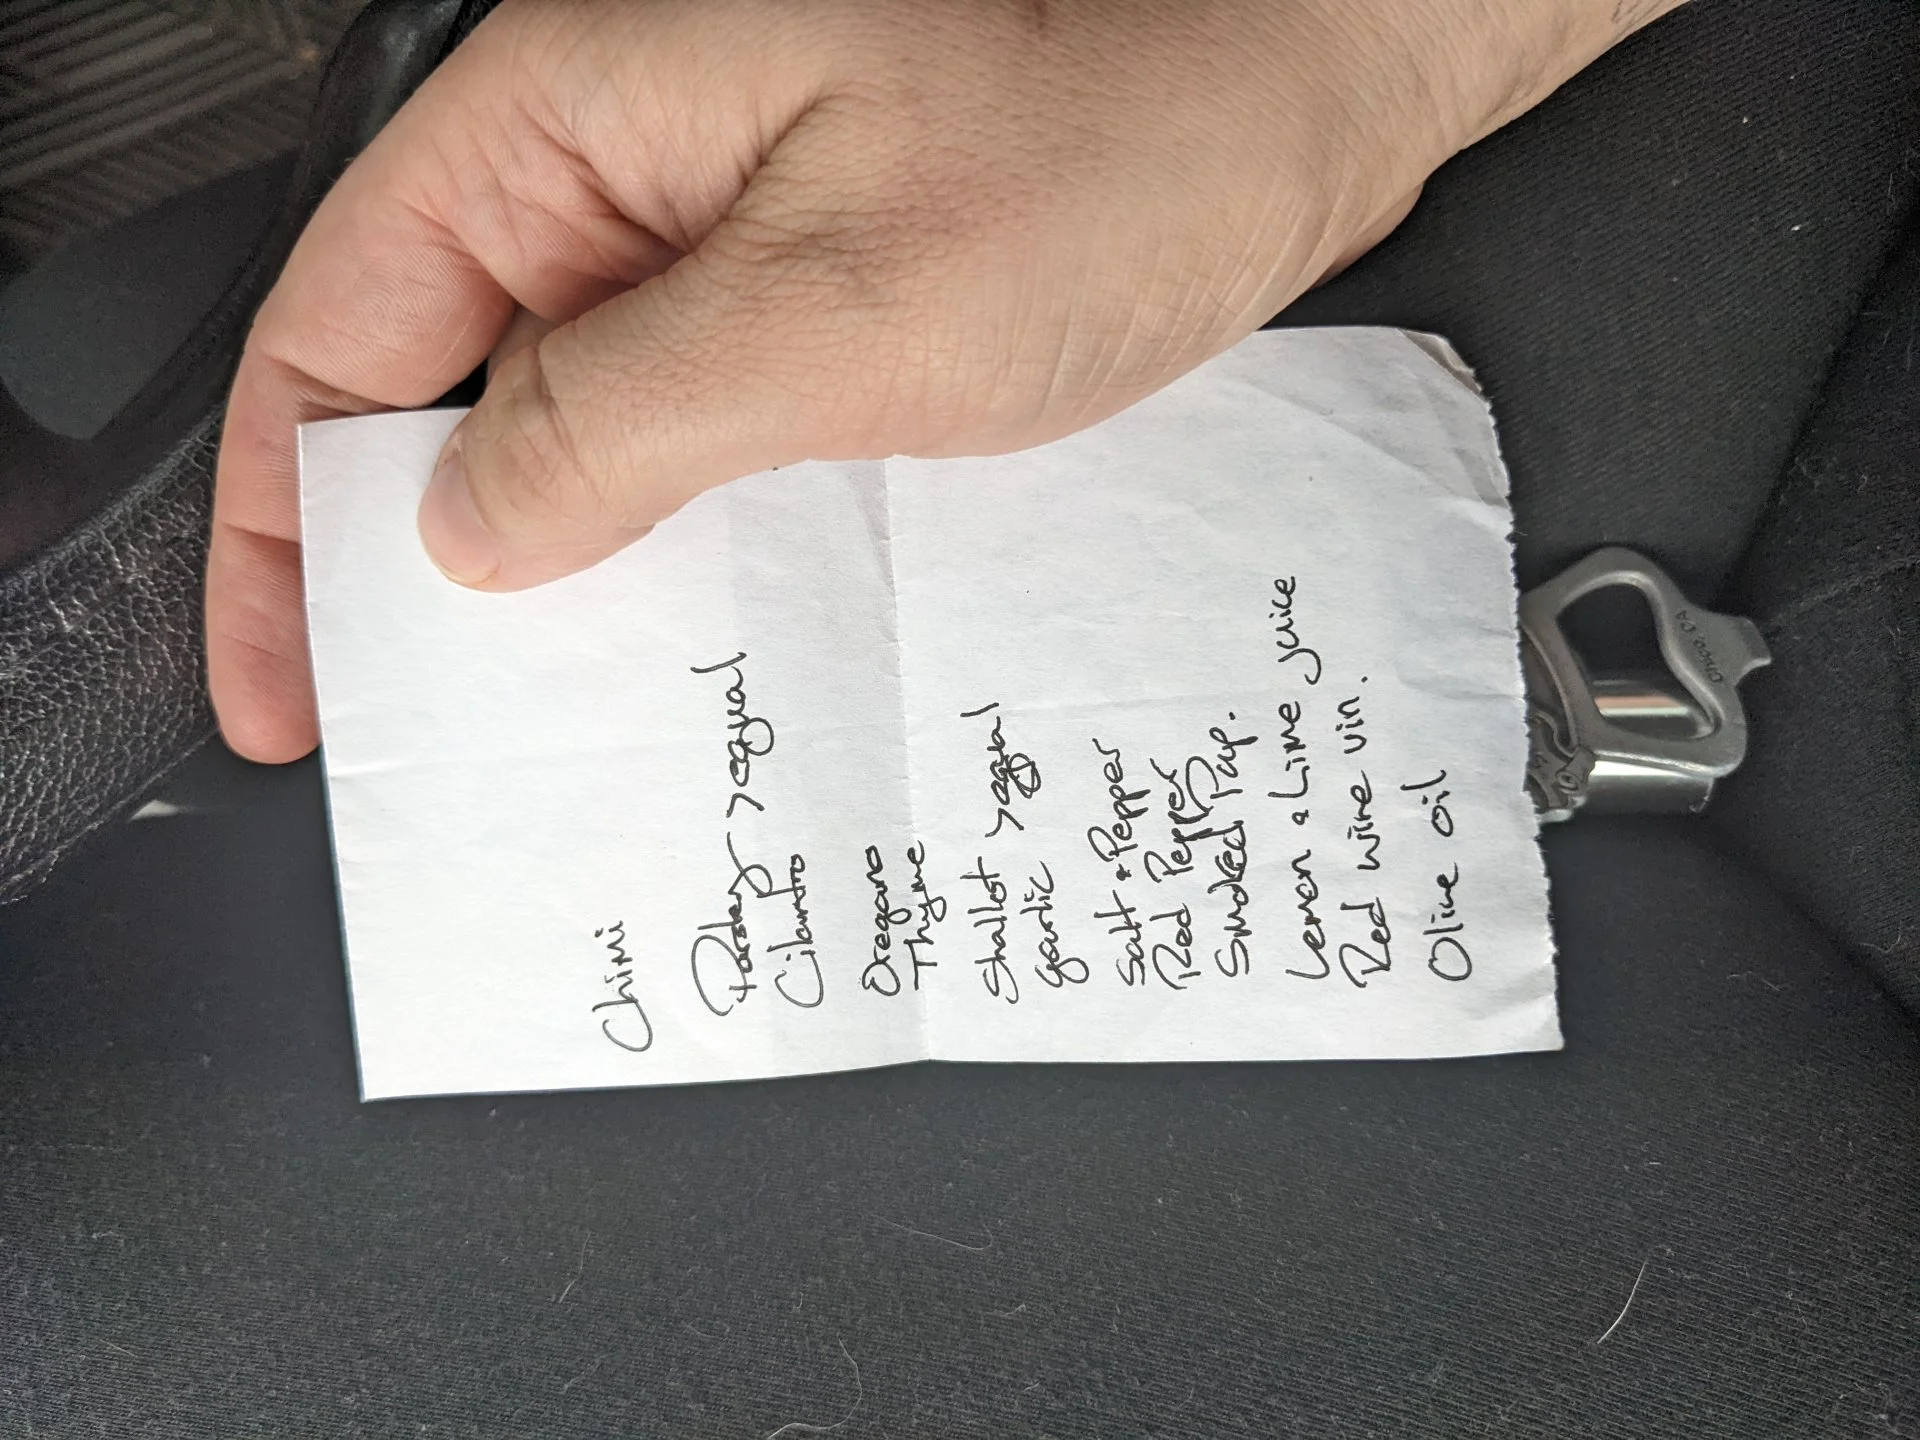 Chimi
Parsley > equal
Cilantro
Oregano
Thyme
Shallot > equal
garlic
Salt & Pepper
Red Pepper
Smoked Pap.
Lemon & Lime juice
Red wine vin.
Olive oil
Chico, CA